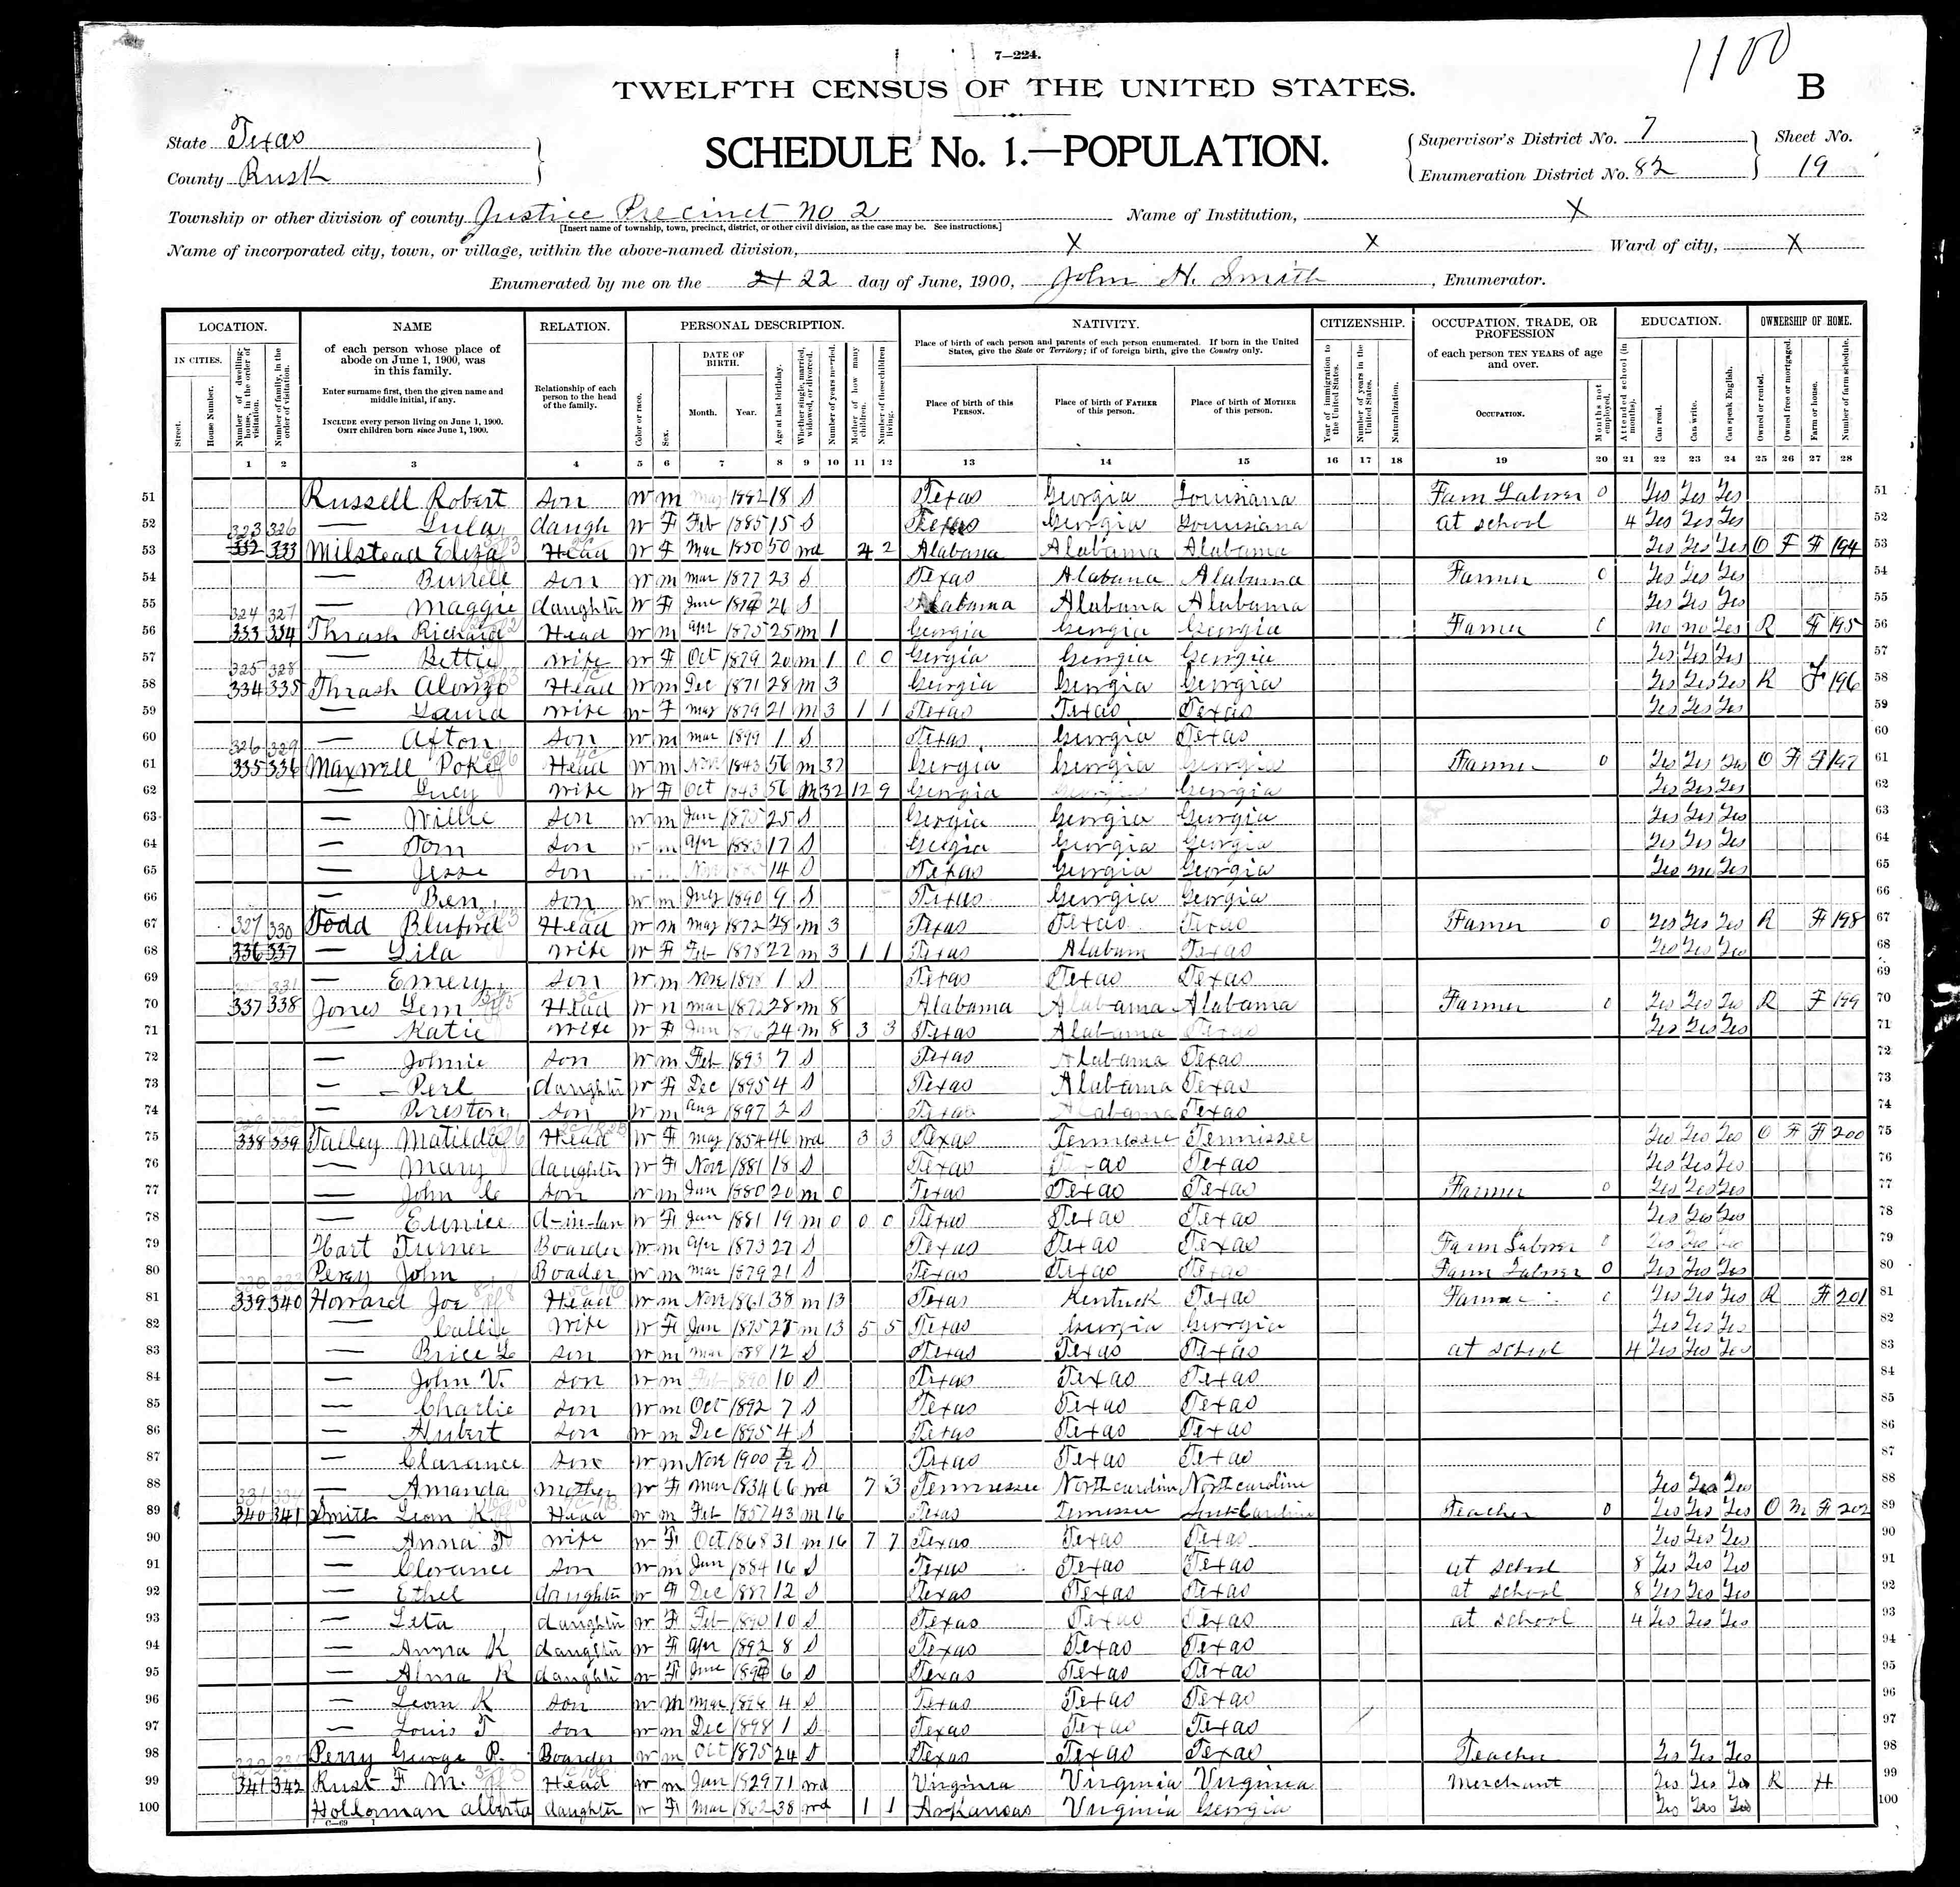 7—224.
1100
TWELFTH CENSUS OF THE UNITED STATES.
B
State Texas
County Rusk
SCHEDULE No. 1.—POPULATION.
Supervisor's District No. 7
Enumeration District No. 82
Sheet No.
19
Township or other division of county Justice Precinct no 2
[Insert name of township, town, precinct, district, or other civil division, as the case may be. See instructions.]
Name of Institution, X
Name of incorporated city, town, or village, within the above-named division, X X
Ward of city, X
Enumerated by me on the 21 22 day of June, 1900, John H. Smith, Enumerator.
LOCATION.
IN CITIES.
Street.
House Number.
Number of dwelling-house, in the order of visitation.
Number of family, in the order of visitation.
NAME
of each person whose place of abode on June 1, 1900, was in this family.
Enter surname first, then the given name and middle initial, if any.
INCLUDE every person living on June 1, 1900.
OMIT children born since June 1, 1900.
RELATION.
Relationship of each person to the head of the family.
PERSONAL DESCRIPTION.
Color or race.
Sex.
DATE OF BIRTH.
Month.
Year.
Age at last birthday.
Whether single, married, widowed, or divorced.
Number of years married.
Mother of how many children.
Number of these children living.
NATIVITY.
Place of birth of each person and parents of each person enumerated. If born in the United States, give the State or Territory; if of foreign birth, give the Country only.
Place of birth of this PERSON.
Place of birth of FATHER of this person.
Place of birth of MOTHER of this person.
CITIZENSHIP.
Year of immigration to the United States.
Number of years in the United States.
Naturalization.
OCCUPATION, TRADE, OR PROFESSION
of each person TEN YEARS of age and over.
OCCUPATION.
Months not employed.
EDUCATION.
Attended school (in months).
Can read.
Can write.
Can speak English.
OWNERSHIP OF HOME.
Owned or rented.
Owned free or mortgaged.
Farm or house.
Number of farm schedule.
1 2 3 4 5 6 7 8 9 10 11 12 13 14 15 16 17 18 19 20 21 22 23 24 25 26 27 28
51 Russell Robert son W m 1882 18 S Texas Georgia Louisiana Fam Labrer 0 Yes Yes Yes 51
52 — Lula daugh W F Feb 1885 15 S Texas Georgia Louisiana at school 4 Yes Yes Yes 52
323 326
53 332 333 Milstead Eliza Head W F Mar 1850 50 wd 4 2 Alabama Alabama Alabama Yes Yes Yes O F F 194 53
54 — Burrell son W m Mar 1877 23 S Texas Alabama Alabama Farmer 0 Yes Yes Yes 54
55 — Maggie daughter W F June 26 S Alabama Alabama Alabama Yes Yes Yes 55
324 327
56 333 334 Thrash Richard Head W m Apr 1875 25 m 1 Georgia Georgia Georgia Farmer 0 no no Yes R F 195 56
57 — Bettie wife W F Oct 1879 20 m 1 0 0 Gergia Georgia Georgia Yes Yes Yes 57
325 328
58 334 335 Thrash Alonzo Head W m Dec 1871 28 m 3 Georgia Georgia Georgia Yes Yes Yes R F 196 58
59 — Laura wife W F May 1879 21 m 3 1 1 Texas Texas Texas Yes Yes Yes 59
60 — Afton son W m Mar 1899 1 S Texas Georgia Texas 60
326 329
61 335 336 Maxwell Poke Head W m Nov 1843 56 m 32 Georgia Georgia Georgia Farmer 0 Yes Yes Yes O F F 197 61
62 — Lucy wife W F Oct 1843 56 m 32 12 9 Georgia Georgia Yes Yes Yes 62
63 — Willie son W m Jan 1875 25 S Georgia Georgia Georgia Yes Yes Yes 63
64 — Tom son W m Apr 1883 17 S Georgia Georgia Georgia Yes Yes Yes 64
65 — Jesse son Nov 14 S Texas Georgia Georgia Yes no Yes 65
66 — Ben son W m July 1890 9 S Texas Georgia Georgia 66
67 327 330 Todd Bluford Head W m May 1872 28 m 3 Texas Texas Texas Farmer 0 Yes Yes Yes R F 198 67
68 336 337 — Lila wife W F Feb 1878 22 m 3 1 1 Texas Alabam Texas Yes Yes Yes 68
69 — Emery son W m Nov 1898 1 S Texas Texas Texas 69
70 337 338 Jones Lem Head W m Mar 1872 28 m 8 Alabama Alabama Alabama Farmer 0 Yes Yes Yes R F 199 70
71 — Katie wife W F Jan 1876 24 m 8 3 3 Texas Alabama Texas Yes Yes Yes 71
72 — Johnie son W m Feb 1893 7 S Texas Alabama Texas 72
73 — Perl daughter W F Dec 1895 4 S Texas Alabama Texas 73
74 — Preston son W m Aug 1897 2 S Texas Alabama Texas 74
75 338 339 Talley Matilda Head W F May 1854 46 wd 3 3 Texas Tennessee Tennissee Yes Yes Yes O F F 200 75
76 — Mary daughter W F Nov 1881 18 S Texas Texas Texas Yes Yes Yes 76
77 — John son W m Jan 1880 20 m 0 Texas Texas Texas Farmer 0 Yes Yes Yes 77
78 — Eunice d-in-law W F Jan 1881 19 m 0 0 0 Texas Texas Texas Yes Yes Yes 78
79 Hart Turner Boarder W m Apr 1873 27 S Texas Texas Texas Farm Labrer 0 Yes Yes Yes 79
80 Percy John Boader W m Mar 1879 21 S Texas Texas Texas Farm Labrer 0 Yes Yes Yes 80
81 339 340 Howard Joe Head W m Nov 1861 38 m 13 Texas Kentuck Texas Farmer 0 Yes Yes Yes R F 201 81
82 — Callie wife W F Jan 1875 m 13 5 5 Texas Georgia Georgia Yes Yes Yes 82
83 — Brice L son W m Mar 1888 12 S Texas Texas Texas at school 4 Yes Yes Yes 83
84 — John V. son W m Feb 1890 10 S Texas Texas Texas 84
85 — Charlie son W m Oct 1892 7 S Texas Texas Texas 85
86 — Hubert son W m Dec 1895 4 S Texas Texas Texas 86
87 — Clarance son W m Nov 1900 S Texas Texas Texas 87
88 — Amanda mother W F Mar 1834 66 wd 7 3 Tennessee North carolina North caroline Yes Yes Yes 88
331 334
89 340 341 Smith Leon K Head W m Feb 1857 43 m 16 Texas Tennessee South Carolina Teacher 0 Yes Yes Yes O M F 202 89
90 — Anna F wife W F Oct 1868 31 m 16 7 7 Texas Texas Texas Yes Yes Yes 90
91 — Clorance son W m Jan 1884 16 S Texas Texas Texas at school 8 Yes Yes Yes 91
92 — Ethel daughter W F Dec 1887 12 S Texas Texas Texas at school 8 Yes Yes Yes 92
93 — Leta daughter W F Feb 1890 10 S Texas Texas Texas at school 4 Yes Yes Yes 93
94 — Anna K daughter W F Apr 1892 8 S Texas Texas Texas 94
95 — Alma R daughter W F June 6 S Texas Texas Texas 95
96 — Leon K son W m Mar 1896 4 S Texas Texas Texas 96
97 — Louis T son W m Dec 1898 1 S Texas Texas Texas 97
98 Perry George P. Boarder W m Oct 1875 24 S Texas Texas Texas Teacher Yes Yes Yes 98
99 341 342 Rust F M. Head W m Jan 1829 71 wd Virginia Virginia Virginia Merchant Yes Yes Yes R H 99
100 Holloman Alberta daughter W F Mar 1862 38 wd 1 1 Arkansas Virginia Georgia Yes Yes Yes 100
C—69 1